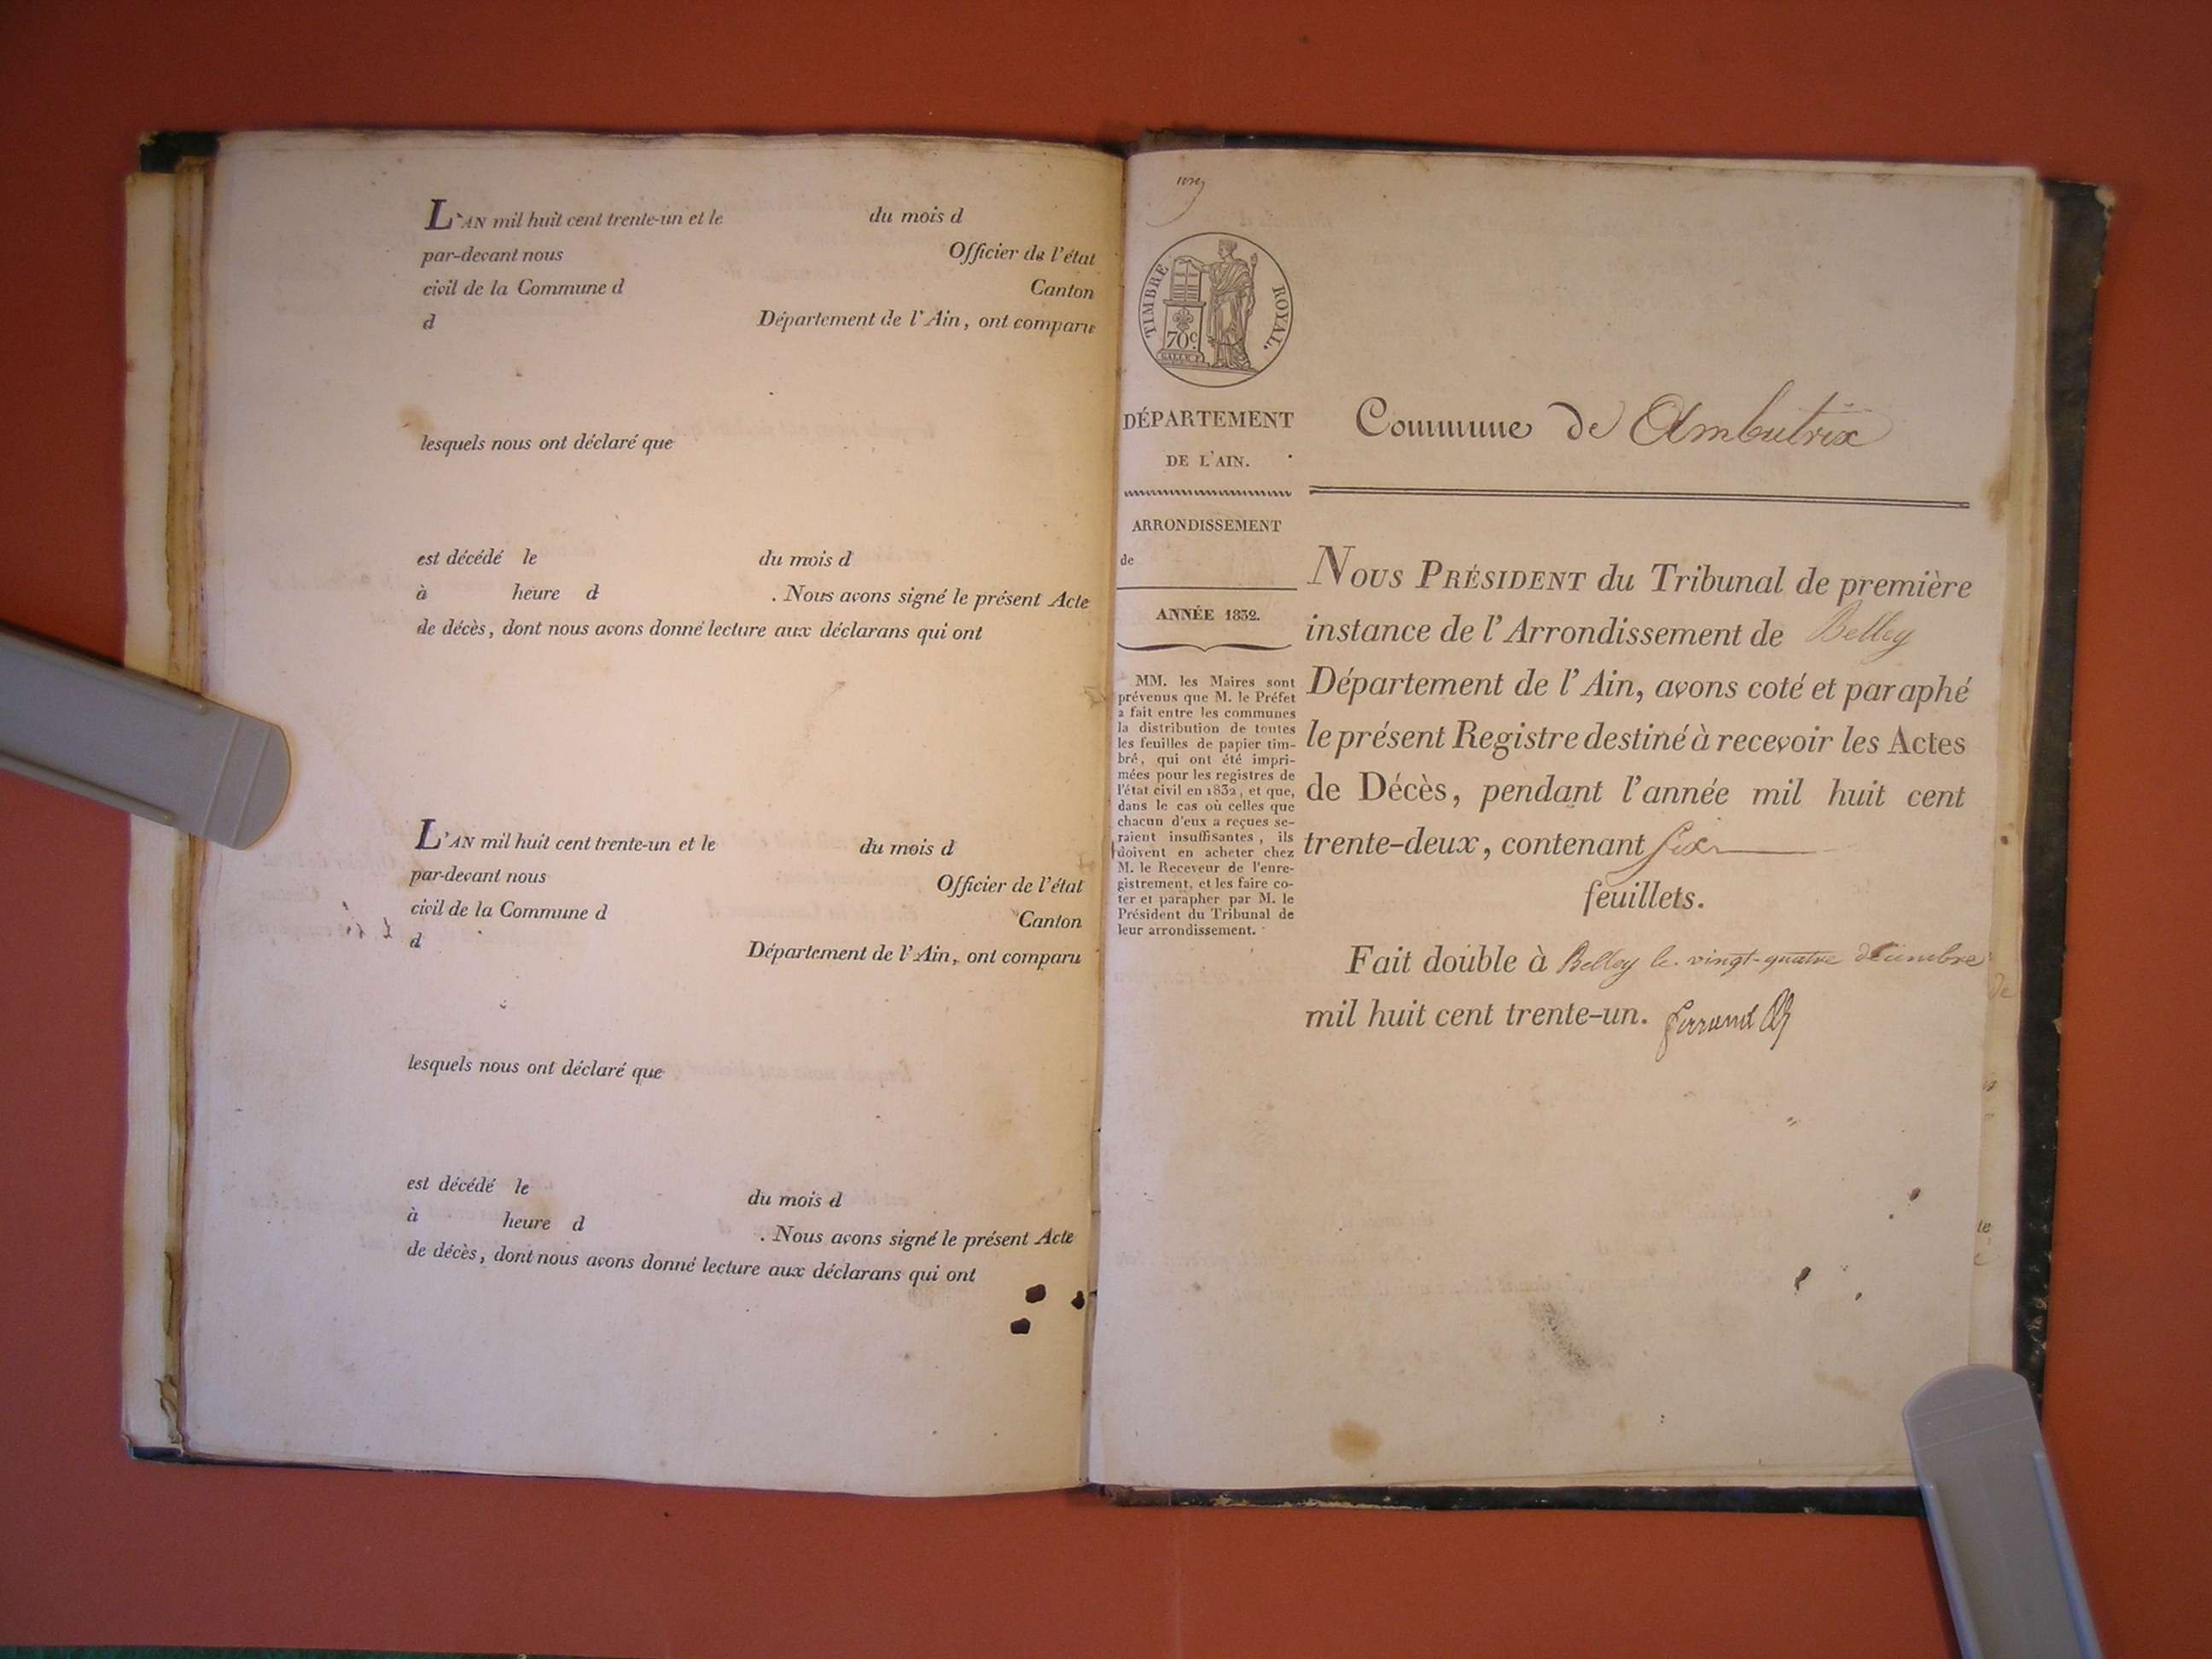 L'AN mil huit cent trente-un et le du mois d
par-devant nous Officier de l'état
civil de la Commune d Canton
d Département de l'Ain, ont comparu
lesquels nous ont déclaré que
est décédé le du mois d
à heure d . Nous avons signé le présent Acte
de décès, dont nous avons donné lecture aux déclarans qui ont
L'AN mil huit cent trente-un et le du mois d
par-devant nous Officier de l'état
civil de la Commune d Canton
d Département de l'Ain, ont comparu
lesquels nous ont déclaré que
est décédé le du mois d
à heure d . Nous avons signé le présent Acte
de décès, dont nous avons donné lecture aux déclarans qui ont
TIMBRE ROYAL.
70c.
DÉPARTEMENT
DE L'AIN.
ARRONDISSEMENT
de
ANNÉE 1832.
MM. les Maires sont
prévenus que M. le Préfet
a fait entre les communes
la distribution de toutes
les feuilles de papier tim-
bré, qui ont été impri-
mées pour les registres de
l'état civil en 1832, et que,
dans le cas où celles que
chacun d'eux a reçues se-
raient insuffisantes, ils
doivent en acheter chez
M. le Receveur de l'enre-
gistrement, et les faire co-
ter et parapher par M. le
Président du Tribunal de
leur arrondissement.
Commune de Ambutrix
NOUS PRÉSIDENT du Tribunal de première
instance de l'Arrondissement de Belley
Département de l'Ain, avons coté et paraphé
le présent Registre destiné à recevoir les Actes
de Décès, pendant l'année mil huit cent
trente-deux, contenant six
feuillets.
Fait double à Belley le vingt-quatre décembre
mil huit cent trente-un.